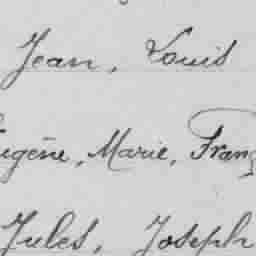 Jean, Louis
Eugène, Marie, Franç
Jules, Joseph